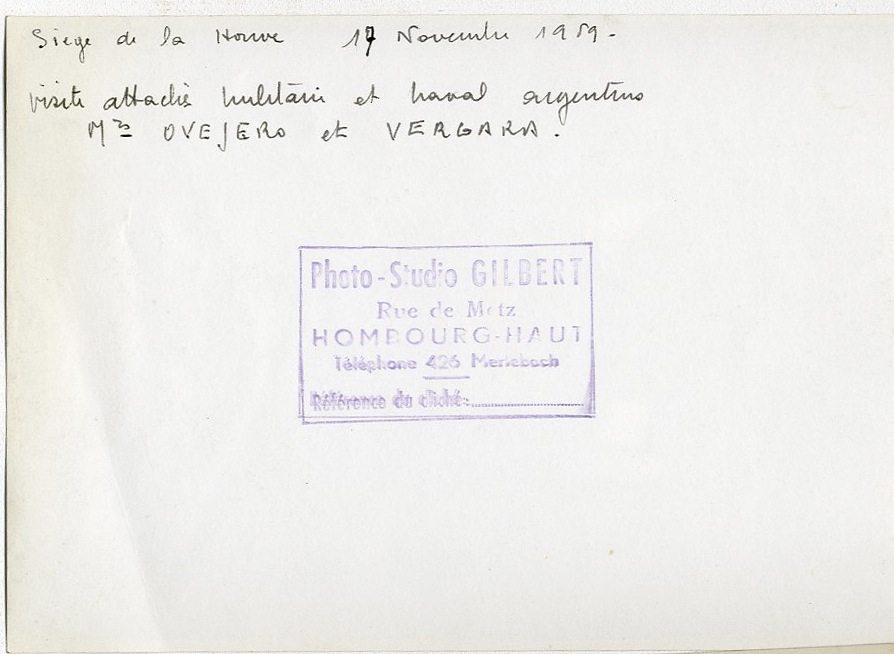 Siege de la Houve 17 Novembre 1959-
visite attachés militaire et naval argentins
Mrs OVEJERO et VERGARA.
Photo-Studio GILBERT
Rue de Metz
HOMBOURG-HAUT
Téléphone 426 Merlebach
Référence du cliché: